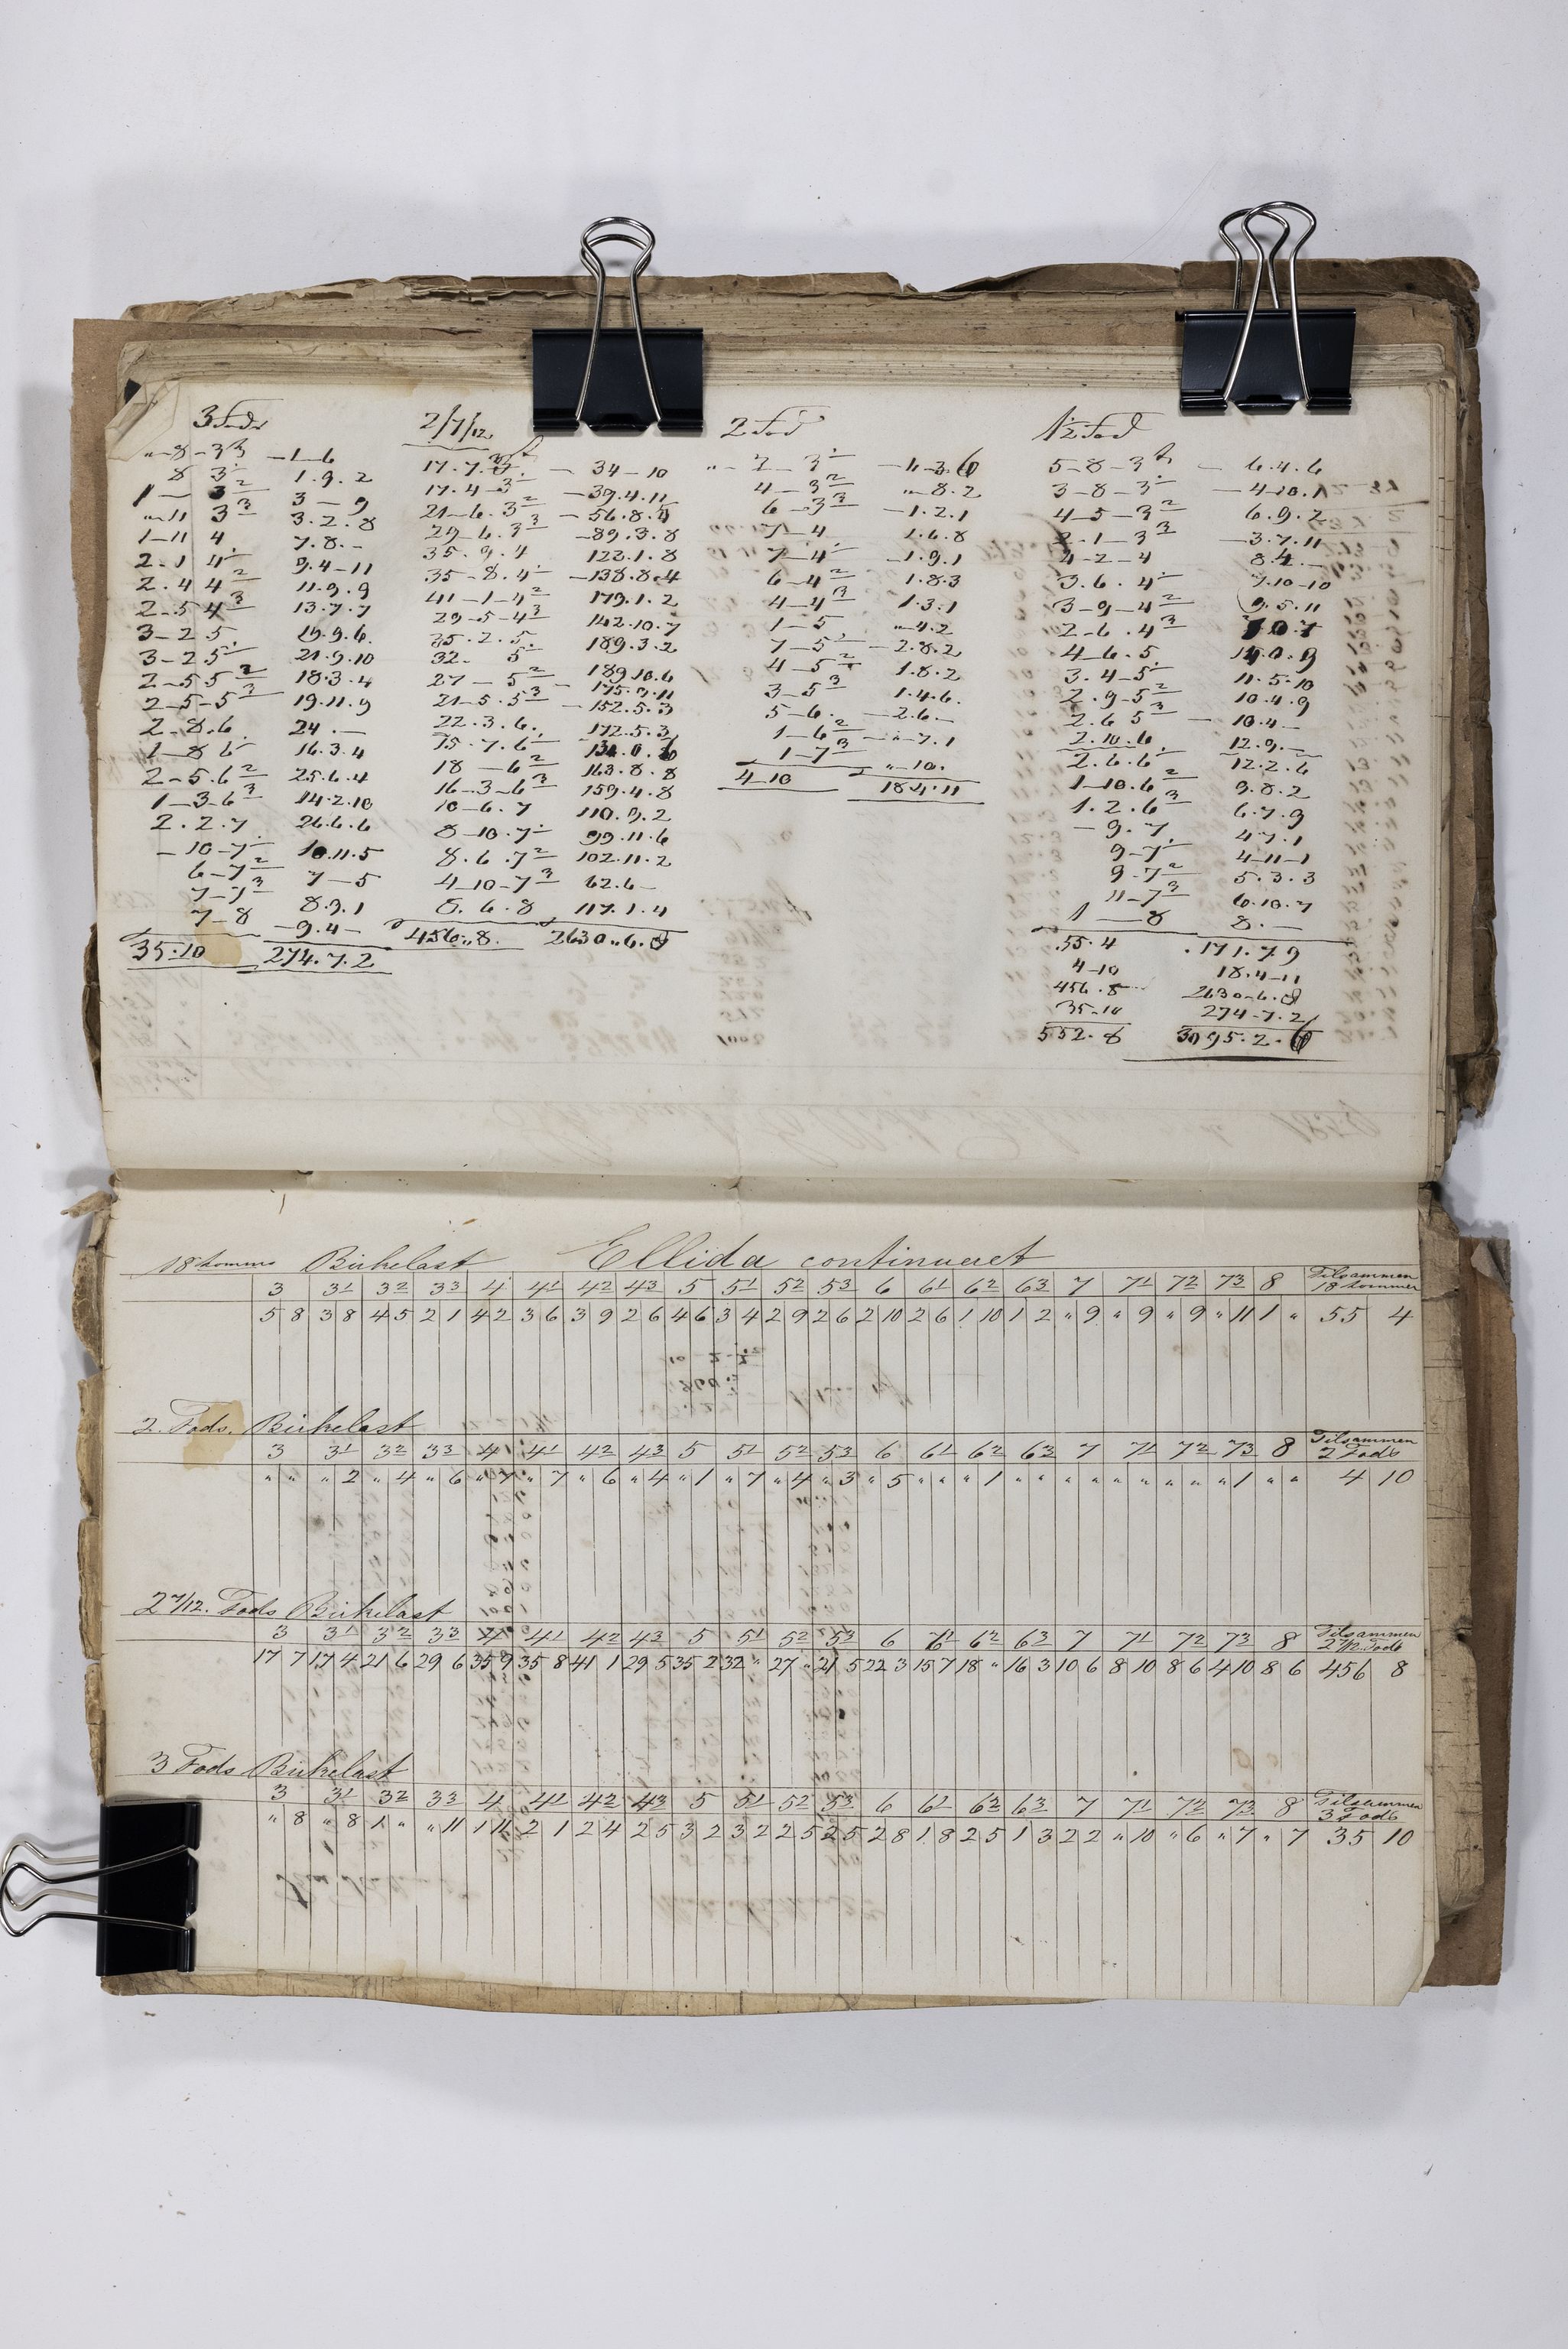 3 Fods 2/7/12 2 Fod 1½ Fod
"-8-3 -1-6 17.7.3 - 34-10 5-8-3 - 6.4.6
8 3¹ 1.9.2 17.4-3¹ -39.4.11 "-2-3¹ 3-8-3¹ -4-10.1
1— 3² 3-9 21-6.3² -56.8.4 4-3² "-8.2 4-5-3² 6.9.2
"-11 3³ 3.2.8 29-6.3³ -89.3.8 6-3³ -1.2.1 2-1-3³ -3.7.11
1-11 4 7.8.- 35.9.4 123.1.8 7-4 1.6.8 4-2-4 8.4.-
2-1 4¹ 9.4-11 35-8.4¹ -138.8.4 7-4¹ -1.9.1 3.6.4¹ 7.10-10
2.4 4² 11.9.9 41-1-4² 179.1.2 6-4² 1.8.3 3-9-4² 9.5.11
2-5 4³ 13.7.7 29-5-4³ 142.10.7 4-4³ 1.3.1 2-6.4³
3-2 5. 19.9.6. 35.2.5. 189.3.2 1-5 "-4.2 4-6.5
3-2 5¹ 21.9.10 32- 5¹ 189.10.6 7-5¹ -2.8.2 3.4-5¹ 11.5.10
2-5 5² 18.3.4 27-5² - 175.9.11 4-5² 1.8.2 2.9-5² 10.4.9
2-5-5³ 19.11.9 21-5.5³ -152.5.3 3-5³ 1.4.6. 2.6 5³ - 10.4-
2-8.6 24.- 22.3.6. 172.5.3 5-6. -2.6- 2.10.6. 12.9.-
1-8 6¹ 16.3.4 15.7.6¹ 1-6² -"-7.1 2.6.6¹ 12.2.6
2-5.6² 25.6.4 18-6² 163.8.8 1-7³ "-10. 1-10.6² 9.8.2
1-3-6³ 14.2.10 16-3-6³ 159.4.8 4-10 18.4.11 1.2.6³ 6.7.9
2.2.7 26.6.6 10-6.7 110.9.2 -9.7 4.7.1
-10-7¹ 10.11.5 8-10.7¹ 99.11.6 9-7¹ 4-11-1
6-7² 7-5 8.6.7² 102.11.2 9-7² 5.3.3
7-7³ 8.9.1 4-10-7³ 62.6- 11-7³ 6.10.7
7-8 -9.4- 8.6.8 117.1.4 1—8 8.—
35.10 274.7.2 456..8. 2630..6.8 55.4 .171.7 9
4-10 18.4-11
456.8 2630-6.8
35-10 274-7.2
552.8 3095.2.
18 Tomms Birkelast Ellida continueret
3 3¹ 3² 3³ 4 4¹ 4² 4³ 5 5¹ 5² 5³ 6 6¹ 6² 6³ 7 7¹ 7² 7³ 8 Tilsammen 18 Tommer
5 8 3 8 4 5 2 1 4 2 3 6 3 9 2 6 4 6 3 4 2 9 2 6 2 10 2 6 1 10 1 2 " 9 " 9 " 9 " 11 1 " 55 4
2. Fods. Birkelast
3 3¹ 3² 3³ 4 4¹ 4² 4³ 5 5¹ 5² 5³ 6 6¹ 6² 6³ 7 7¹ 7² 7³ 8 Tilsammen 2 Fods
" " " 2 " 4 " 6 " 7 " 7 " 6 " 4 " 1 " 7 " 4 " 3 " 5 " " " 1 " " " " " " " " " 1 " " 4 10
2 7/12. Fods Birkelast
3 3¹ 3² 3³ 4 4¹ 4² 4³ 5 5¹ 5² 5³ 6 6¹ 6² 6³ 7 7¹ 7² 7³ 8 Tilsammen 2 7/12 Fods
17 7 17 4 21 6 29 6 35 9 35 8 41 1 29 5 35 2 32 " 27 " 21 5 22 3 15 7 18 " 16 3 10 6 8 10 8 6 4 10 8 6 456 8
3 Fods Birkelast
3 3¹ 3² 3³ 4 4¹ 4² 4³ 5 5¹ 5² 5³ 6 6¹ 6² 6³ 7 7¹ 7² 7³ 8 Tilsammen 3 Fods
" 8 " 8 1 " " 11 1 11 2 1 2 4 2 5 3 2 3 2 2 5 2 5 2 8 1 8 2 5 1 3 2 2 " 10 " 6 " 7 " 7 35 10